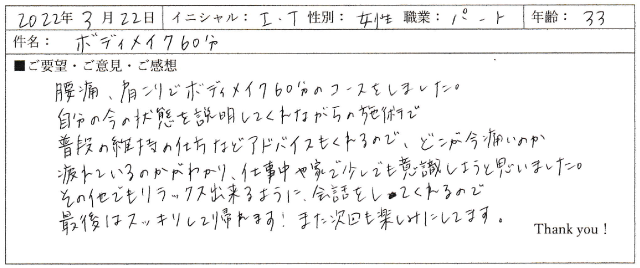 2022年 3月 22日 イニシャル: I・T 性別: 女性 職業: パート 年齢: 33
件名: ボディメイク60分
■ご要望・ご意見・ご感想
腰痛、肩こりでボディメイク60分のコースをしました。
自分の今の状態を説明してくれながらの施術で
普段の維持の仕方などアドバイスもくれるので、どこが今痛いのか
疲れているのかがわかり、仕事中や家で少しでも意識しようと思いました。
その他でもリラックス出来るように、会話をしてくれるので
最後はスッキリして帰れます! また次回も楽しみにしてます。
Thank you!